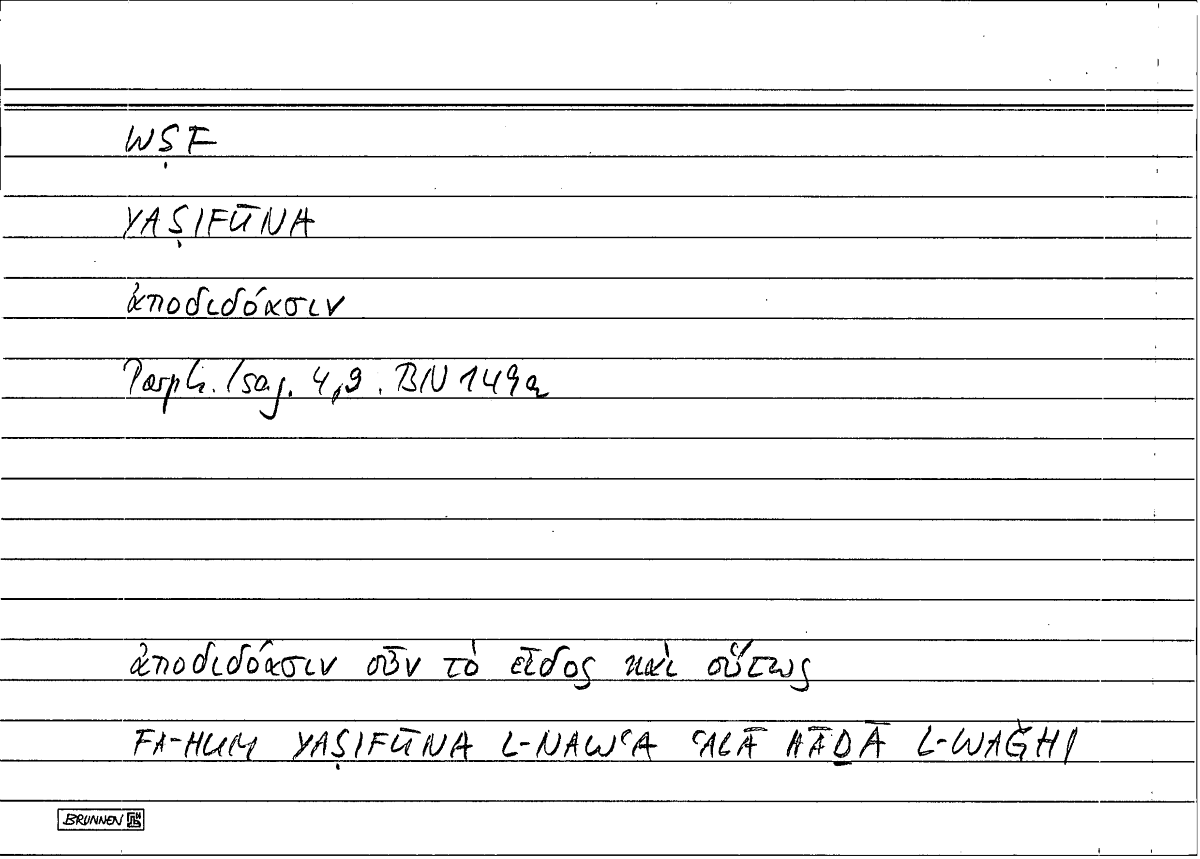 WṢF
YAṢIFŪNA
ἀποδιδόασιν
Porph. Isag. 4,9. BN 149a
ἀποδιδόασιν οὖν τὸ εἶδος καὶ οὕτως
FA-HUM YAṢIFŪNA L-NAWʿA ʿALĀ HĀḎĀ L-WAǦHI
BRUNNEN